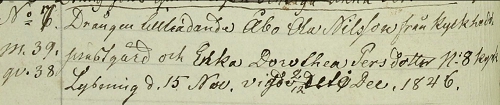 No 7. Drängen tillträdande Åbo Ola Nilsson från Kyrkhult
m. 39. prestgård och Enka Dorothea Persdotter No 8 Kyrk
qv. 38. Lysning d. 15 Nov. vigde d. Dec. 1846.